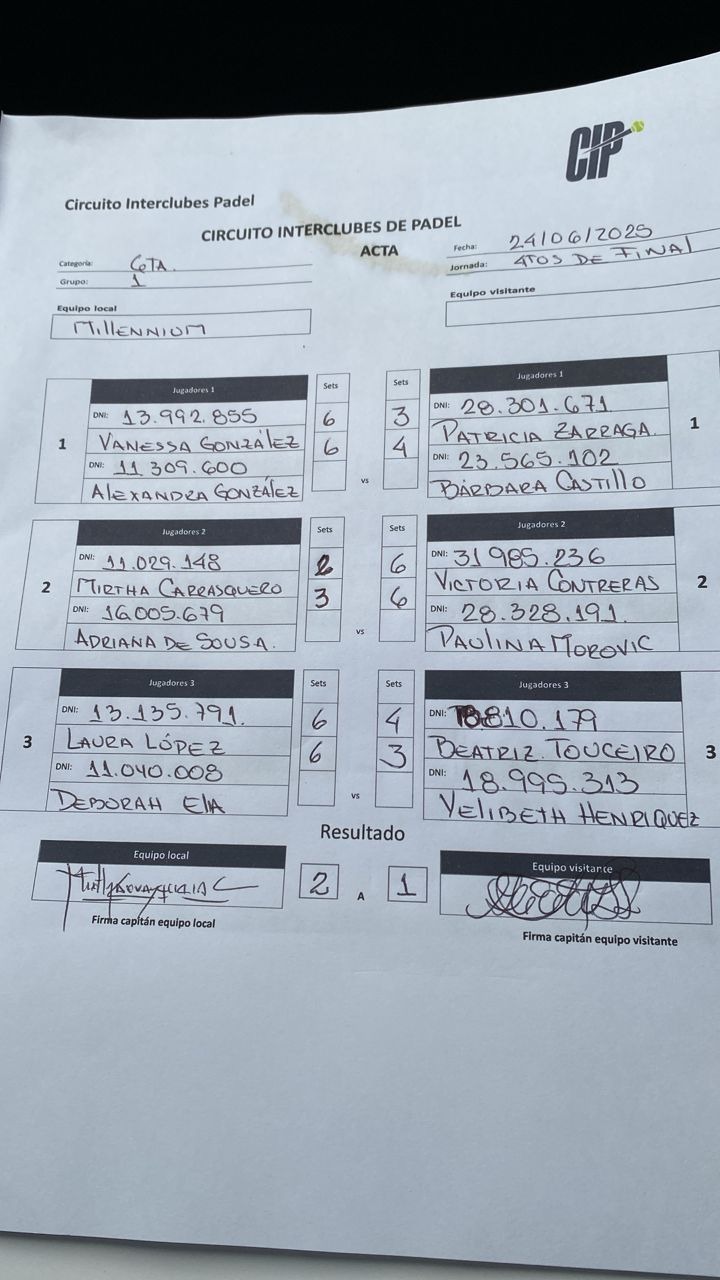 CIP
Circuito Interclubes Padel
CIRCUITO INTERCLUBES DE PADEL
ACTA
Categoría: 6TA.
Grupo: 1
Fecha: 24/06/2025
Jornada: 4TOS DE FINAL
Equipo local
MILLENNIUM
Equipo visitante
1
Jugadores 1
Sets
DNI: 13.992.855 6
VANESSA GONZÁLEZ 6
DNI: 11 309.600
ALEXANDRA GONZÁLEZ
vs
Sets
Jugadores 1
1
3 DNI: 28.301.671
4 PATRICIA ZARRAGA.
DNI: 23.565.102
BÁRBARA CASTILLO
2
Jugadores 2
Sets
DNI: 11.029.148 2
MIRTHA CARRASQUERO 3
DNI: 16.005.679
ADRIANA DE SOUSA.
vs
Sets
Jugadores 2
2
6 DNI: 31 985.236
6 VICTORIA CONTRERAS
DNI: 28.328.191.
PAULINA MOROVIC
3
Jugadores 3
Sets
DNI: 13.135.791. 6
LAURA LÓPEZ 6
DNI: 11.040.008
DEBORAH ELIA
vs
Sets
Jugadores 3
3
4 DNI: 810.179
3 BEATRIZ TOUCEIRO
DNI: 18.995.313
YELIBETH HENRIQUEZ
Resultado
Equipo local
2 A 1
Equipo visitante
Firma capitán equipo local
Firma capitán equipo visitante